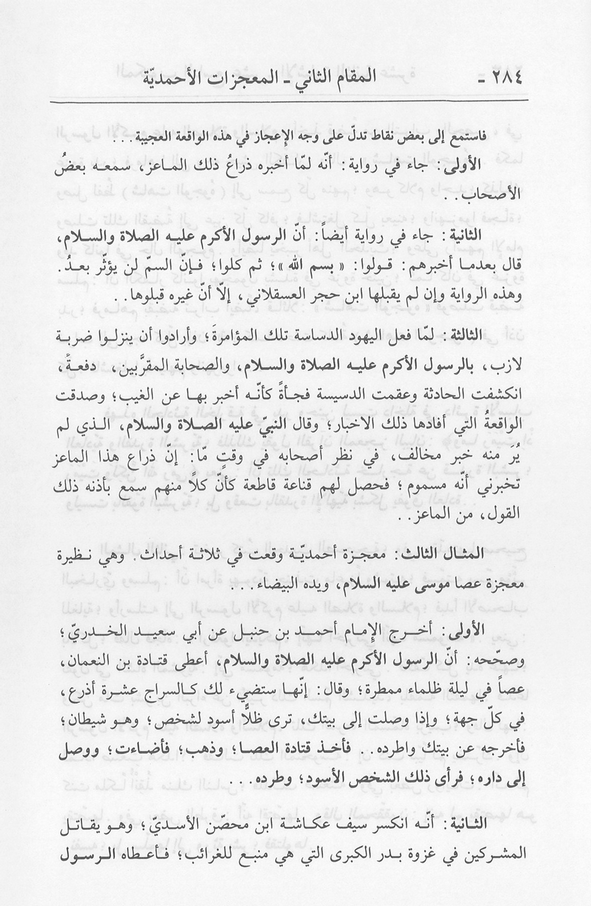 ٢٨٤ - المقام الثاني - المعجزات الأحمديّة
فاستمع إلى بعض نقاط تدلّ على وجه الإعجاز في هذه الواقعة العجيبة...
الأولى: جاء في رواية: أنّه لمّا أخبره ذراعُ ذلك الماعز، سمعه بعضُ
الأصحاب..
الثانية: جاء في رواية أيضاً: أنّ الرسول الأكرم عليه الصلاة والسلام،
قال بعدما أخبرهم: قولوا: « بسم الله »؛ ثم كلوا؛ فإنّ السمّ لن يؤثّر بعدُ.
وهذه الرواية وإن لم يقبلها ابن حجر العسقلاني، إلّا أنّ غيره قبلوها..
الثالثة: لمّا فعل اليهود الدساسة تلك المؤامرةَ؛ وأرادوا أن ينزلوا ضربة
لازب، بالرسول الأكرم عليه الصلاة والسلام، والصحابة المقرَّبين، دفعةً،
انكشفت الحادثة وعقمت الدسيسة فجأةً كأنّه أخبر بها عن الغيب؛ وصدقت
الواقعةُ التي أفادها ذلك الاخبار؛ وقال النبيّ عليه الصلاة والسلام، الذي لم
يُرَ منه خبر مخالف، في نظر أصحابه في وقتٍ مّا: إنّ ذراع هذا الماعز
تخبرني أنّه مسموم؛ فحصل لهم قناعة قاطعة كأنّ كلًّا منهم سمع بأذنه ذلك
القول، من الماعز..
المثال الثالث: معجزة أحمديّة وقعت في ثلاثة أحداث. وهي نظيرة
معجزة عصا موسى عليه السلام، ويده البيضاء...
الأولى: أخرج الإمام أحمد بن حنبل عن أبي سعيد الخدريّ؛
وصحّحه: أنّ الرسول الأكرم عليه الصلاة والسلام، أعطى قتادة بن النعمان،
عصاً في ليلة ظلماء ممطرة؛ وقال: إنّها ستضيء لك كالسراج عشرة أذرع،
في كلّ جهة؛ وإذا وصلت إلى بيتك، ترى ظلًّا أسود لشخص؛ وهو شيطان؛
فأخرجه عن بيتك واطرده.. فأخذ قتادة العصا؛ وذهب؛ فأضاءت؛ ووصل
إلى داره؛ فرأى ذلك الشخص الأسود؛ وطرده...
الثانية: أنّه انكسر سيف عكاشة ابن محصّن الأسديّ؛ وهو يقاتل
المشركين في غزوة بدر الكبرى التي هي منبع للغرائب؛ فأعطاه الرسول